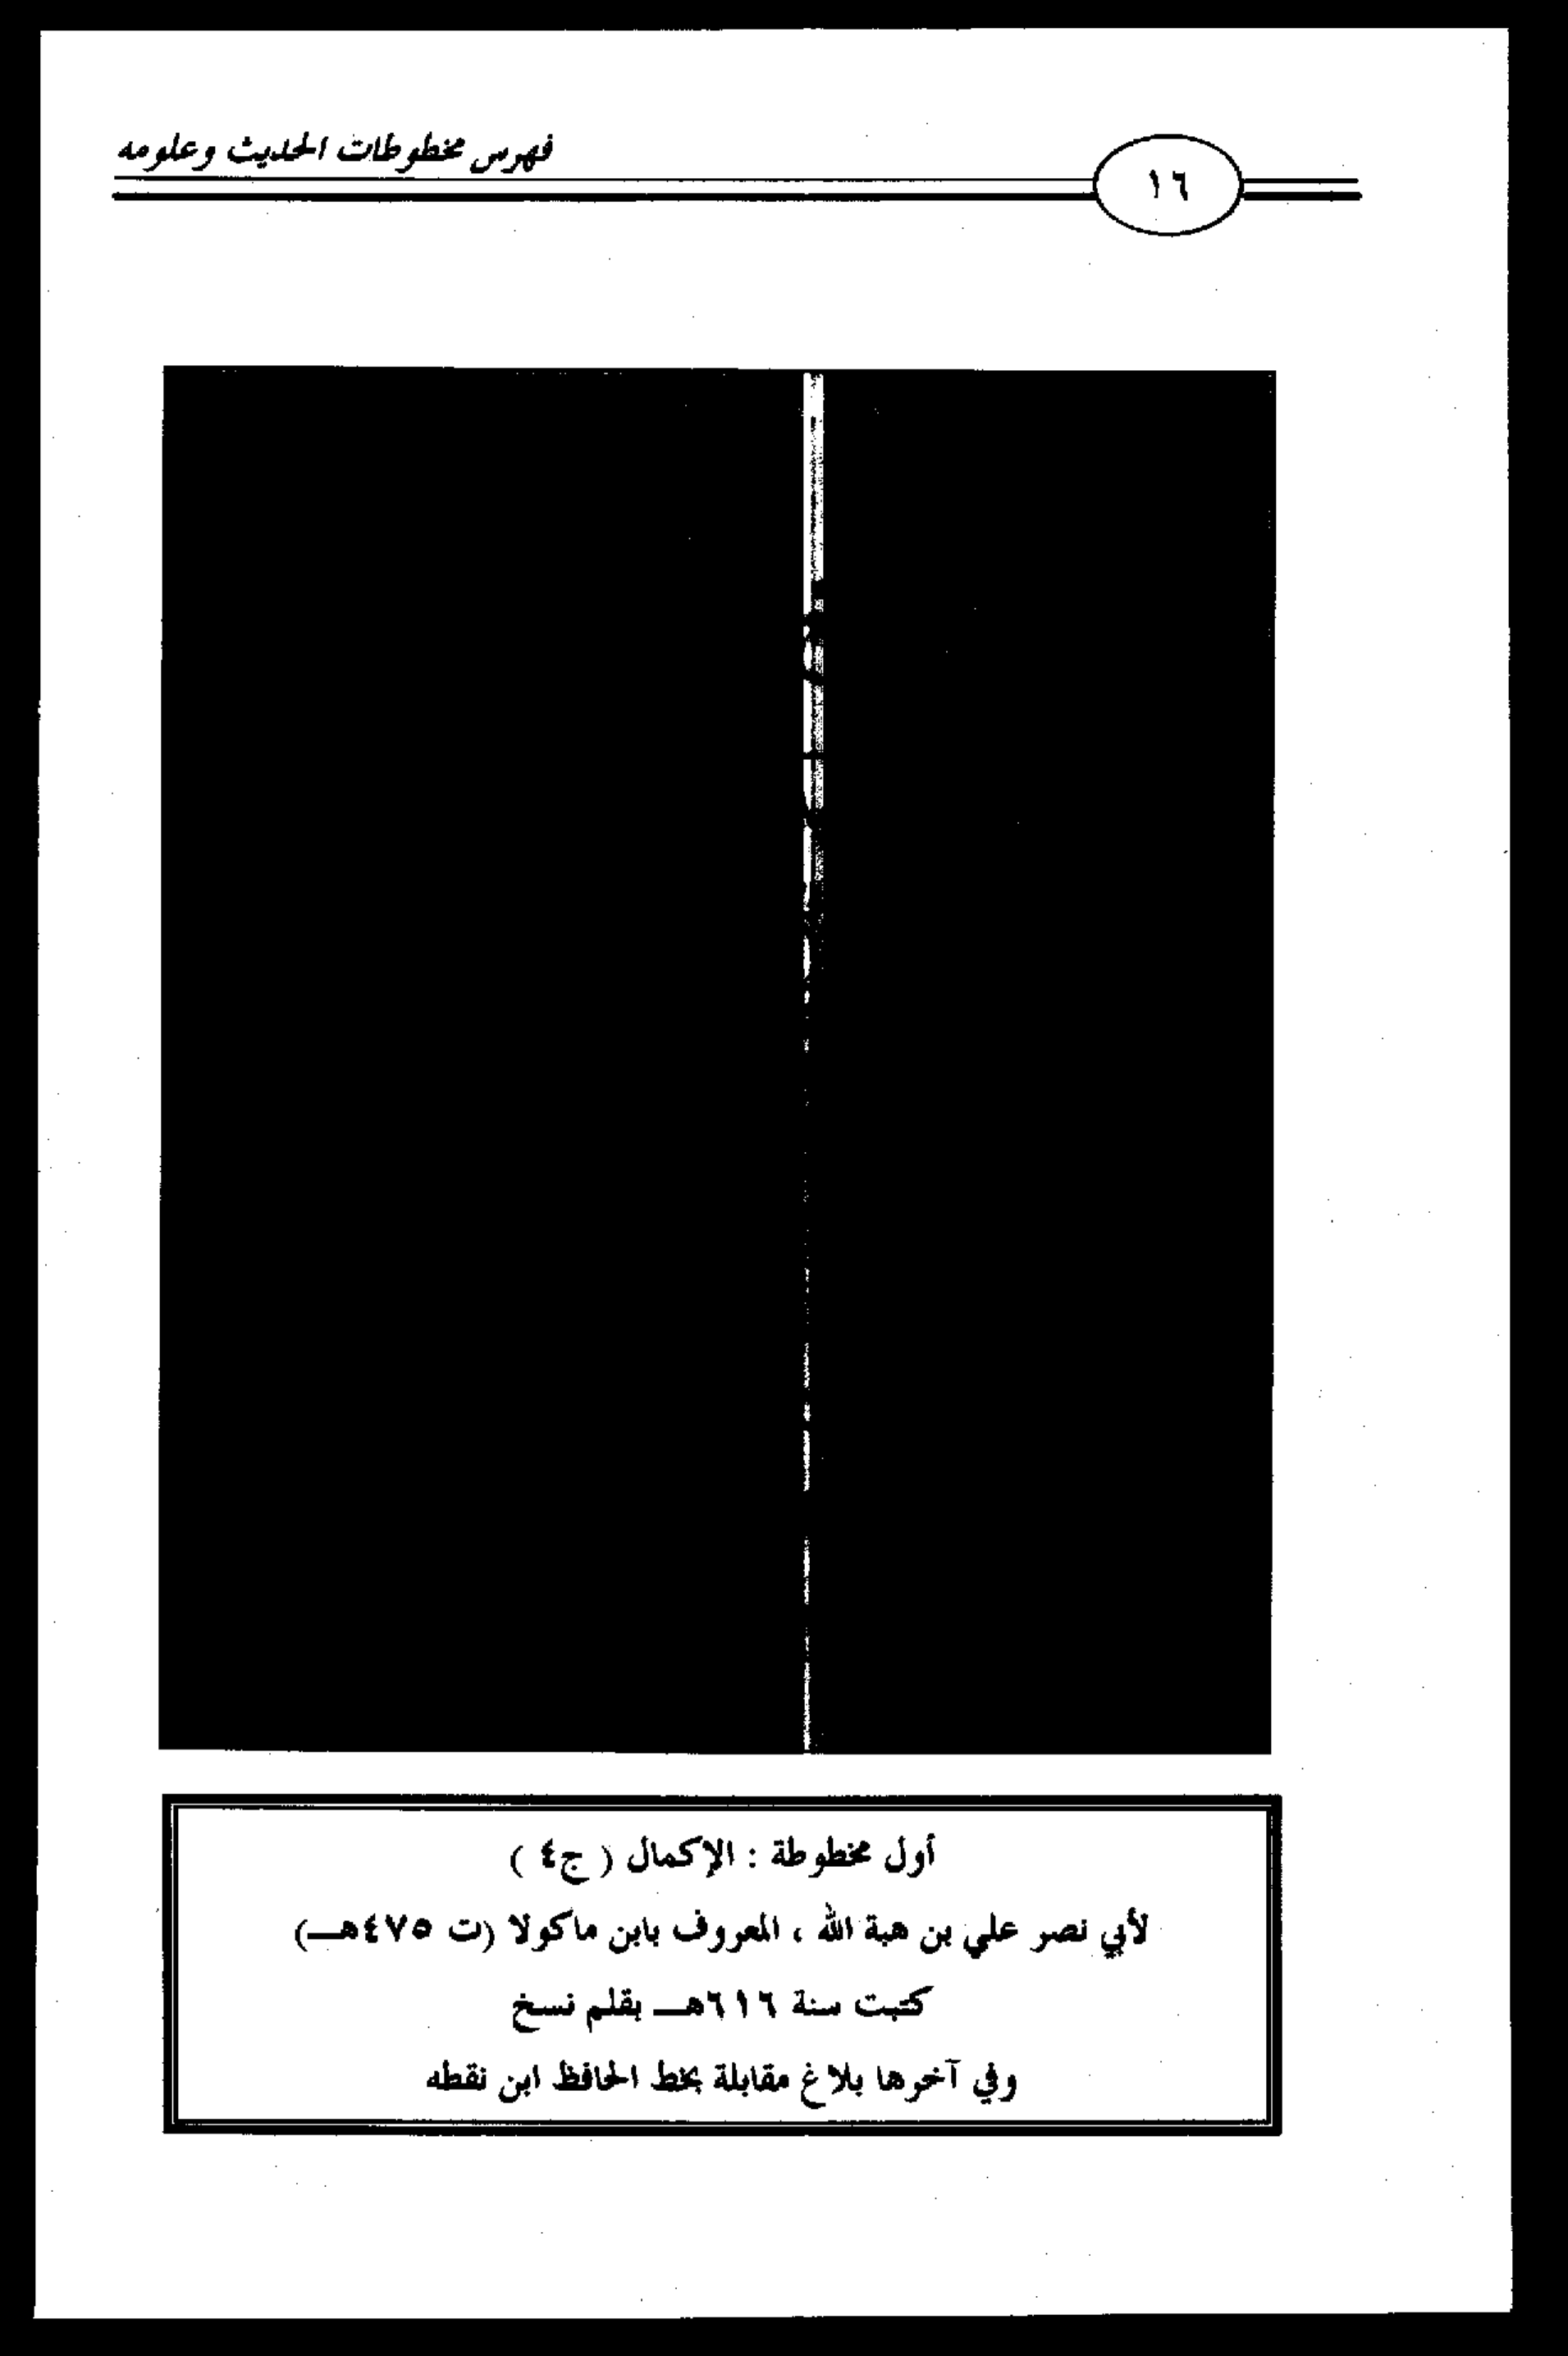 ١٦
فهرس مخطوطات الحديث وعلومه
أول مخطوطة : الإكمال ( ج٤ )
لأبي نصر علي بن هبة الله ، المعروف بابن ماكولا (ت ٤٧٥هـــ)
كتبت سنة ٦١٦هـــ بقلم نسخ
وفي آخرها بلاغ مقابلة بخط الحافظ ابن نقطه